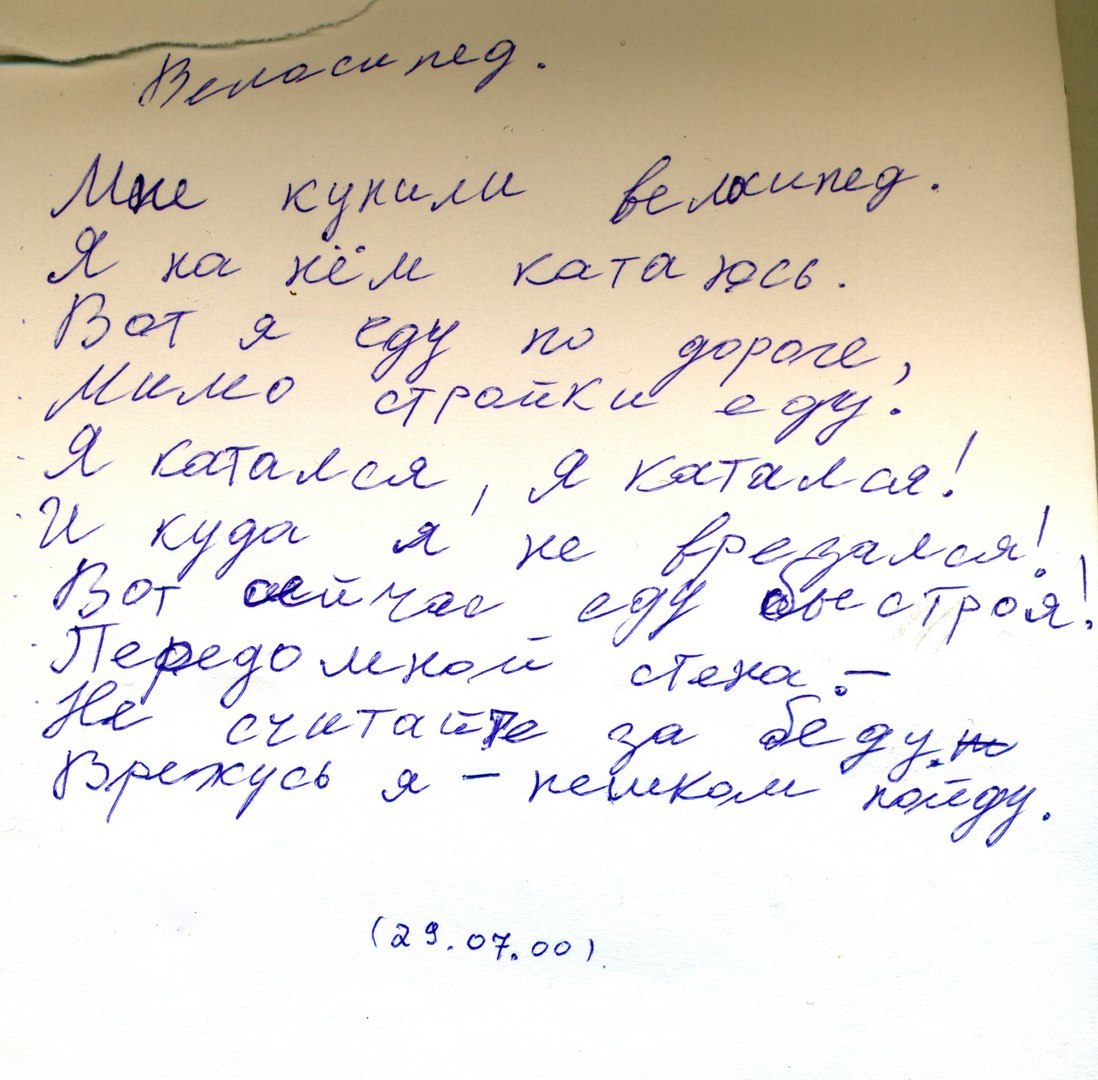 Велосипед.
Мне купили велосипед.
Я на нём катаюсь.
Вот я еду по дороге,
Мимо стройки еду.
Я катался, я катался!
И куда я не врезался!
Вот сейчас еду быстроя!
Передо мной стена. –
Не считайте за беду.
Врежусь я – пешком пойду.
(29.07.00)